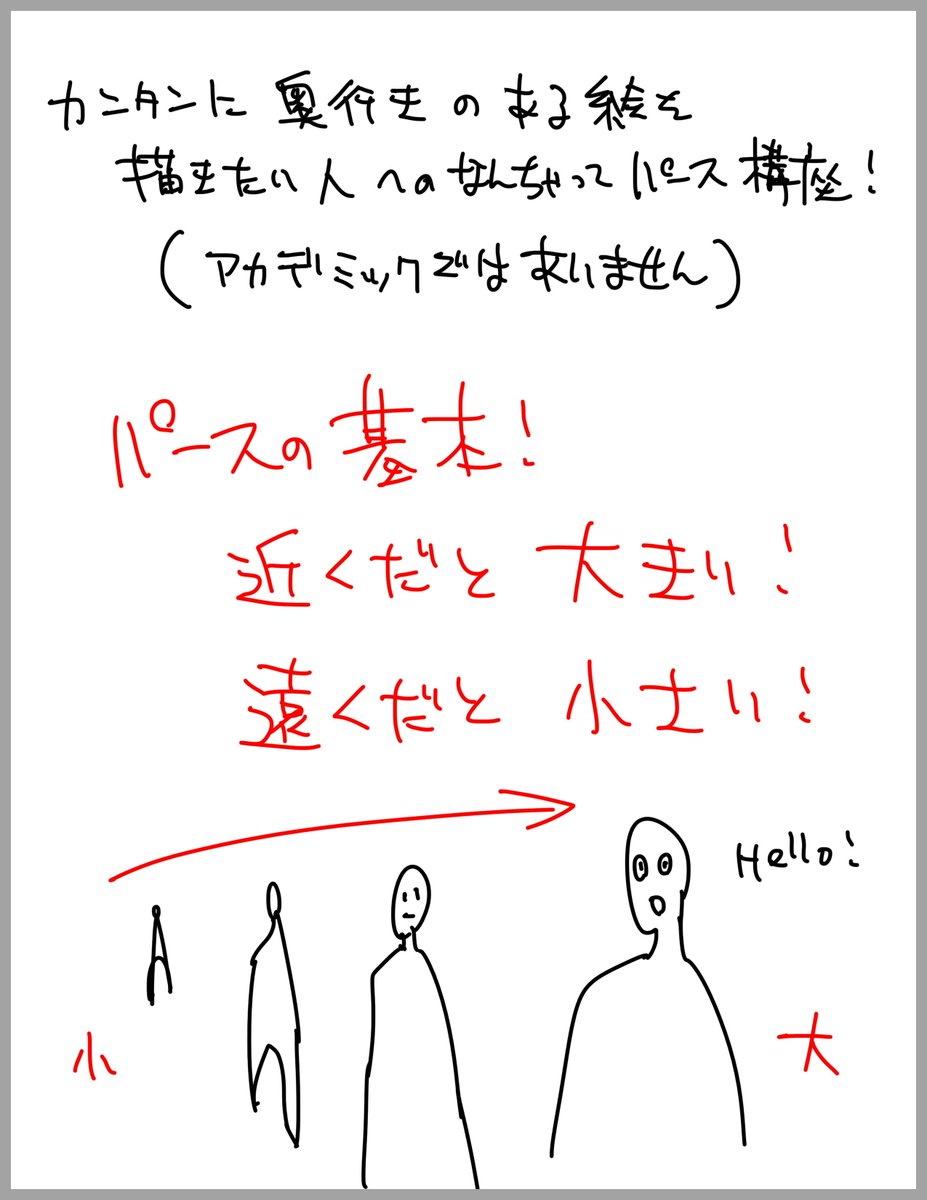 カンタンに奥行きのある絵を
描きたい人へのなんちゃってパース構座!
(アカデミックではありません)
パースの基本!
近くだと大きい!
遠くだと小さい!
Hello!
小
大